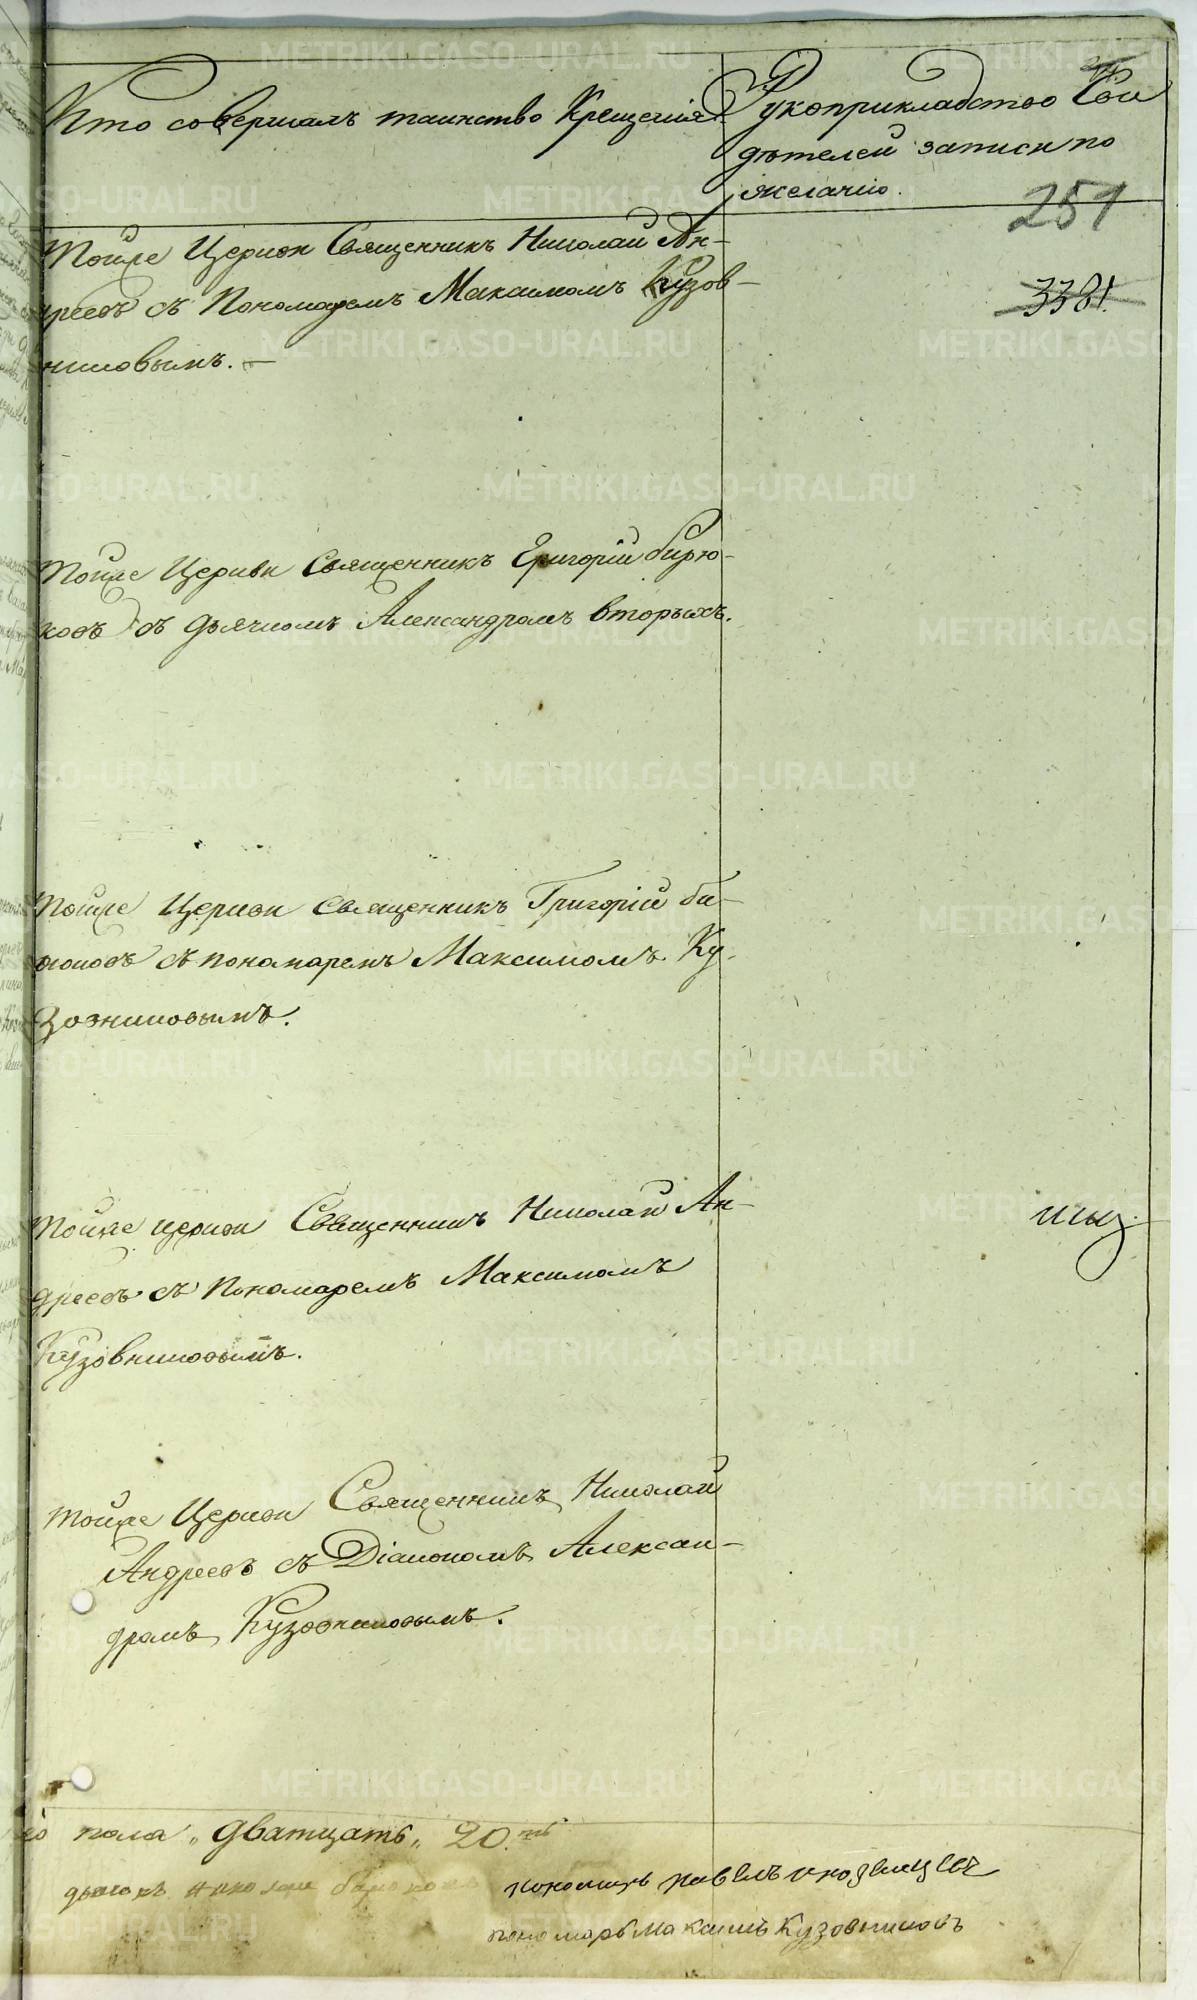 Кто совершалъ таинство Крещенія.
Рукоприкладство Сви
дѣтелей записи по
желанію.
251
3381.
Тойже Церкви Священникъ Николай Ан-
дреевъ съ Пономаремъ Максимомъ Кузов-
никовымъ. -
Тойже Церкви Священникъ Григорій бирю-
ковъ съ дьячкомъ Александромъ вторыхъ.
Тойже Церкви священникъ Григорій би-
рюковъ съ пономаремъ Максимомъ Ку-
зовниковымъ.
Тойже церкви Священникъ Николай Ан-
дреевъ съ Пономаремъ Максимомъ
Кузовниковымъ.
Тойже Церкви Священникъ Николай
Андреевъ съ Діакономъ Алексан-
дромъ Кузовниковымъ.
пола „дватцать„ 20.ть
дьячекъ
пономарь павелъ иноземцевъ
пономарь Максимъ Кузовниковъ
METRIKI.GASO-URAL.RU